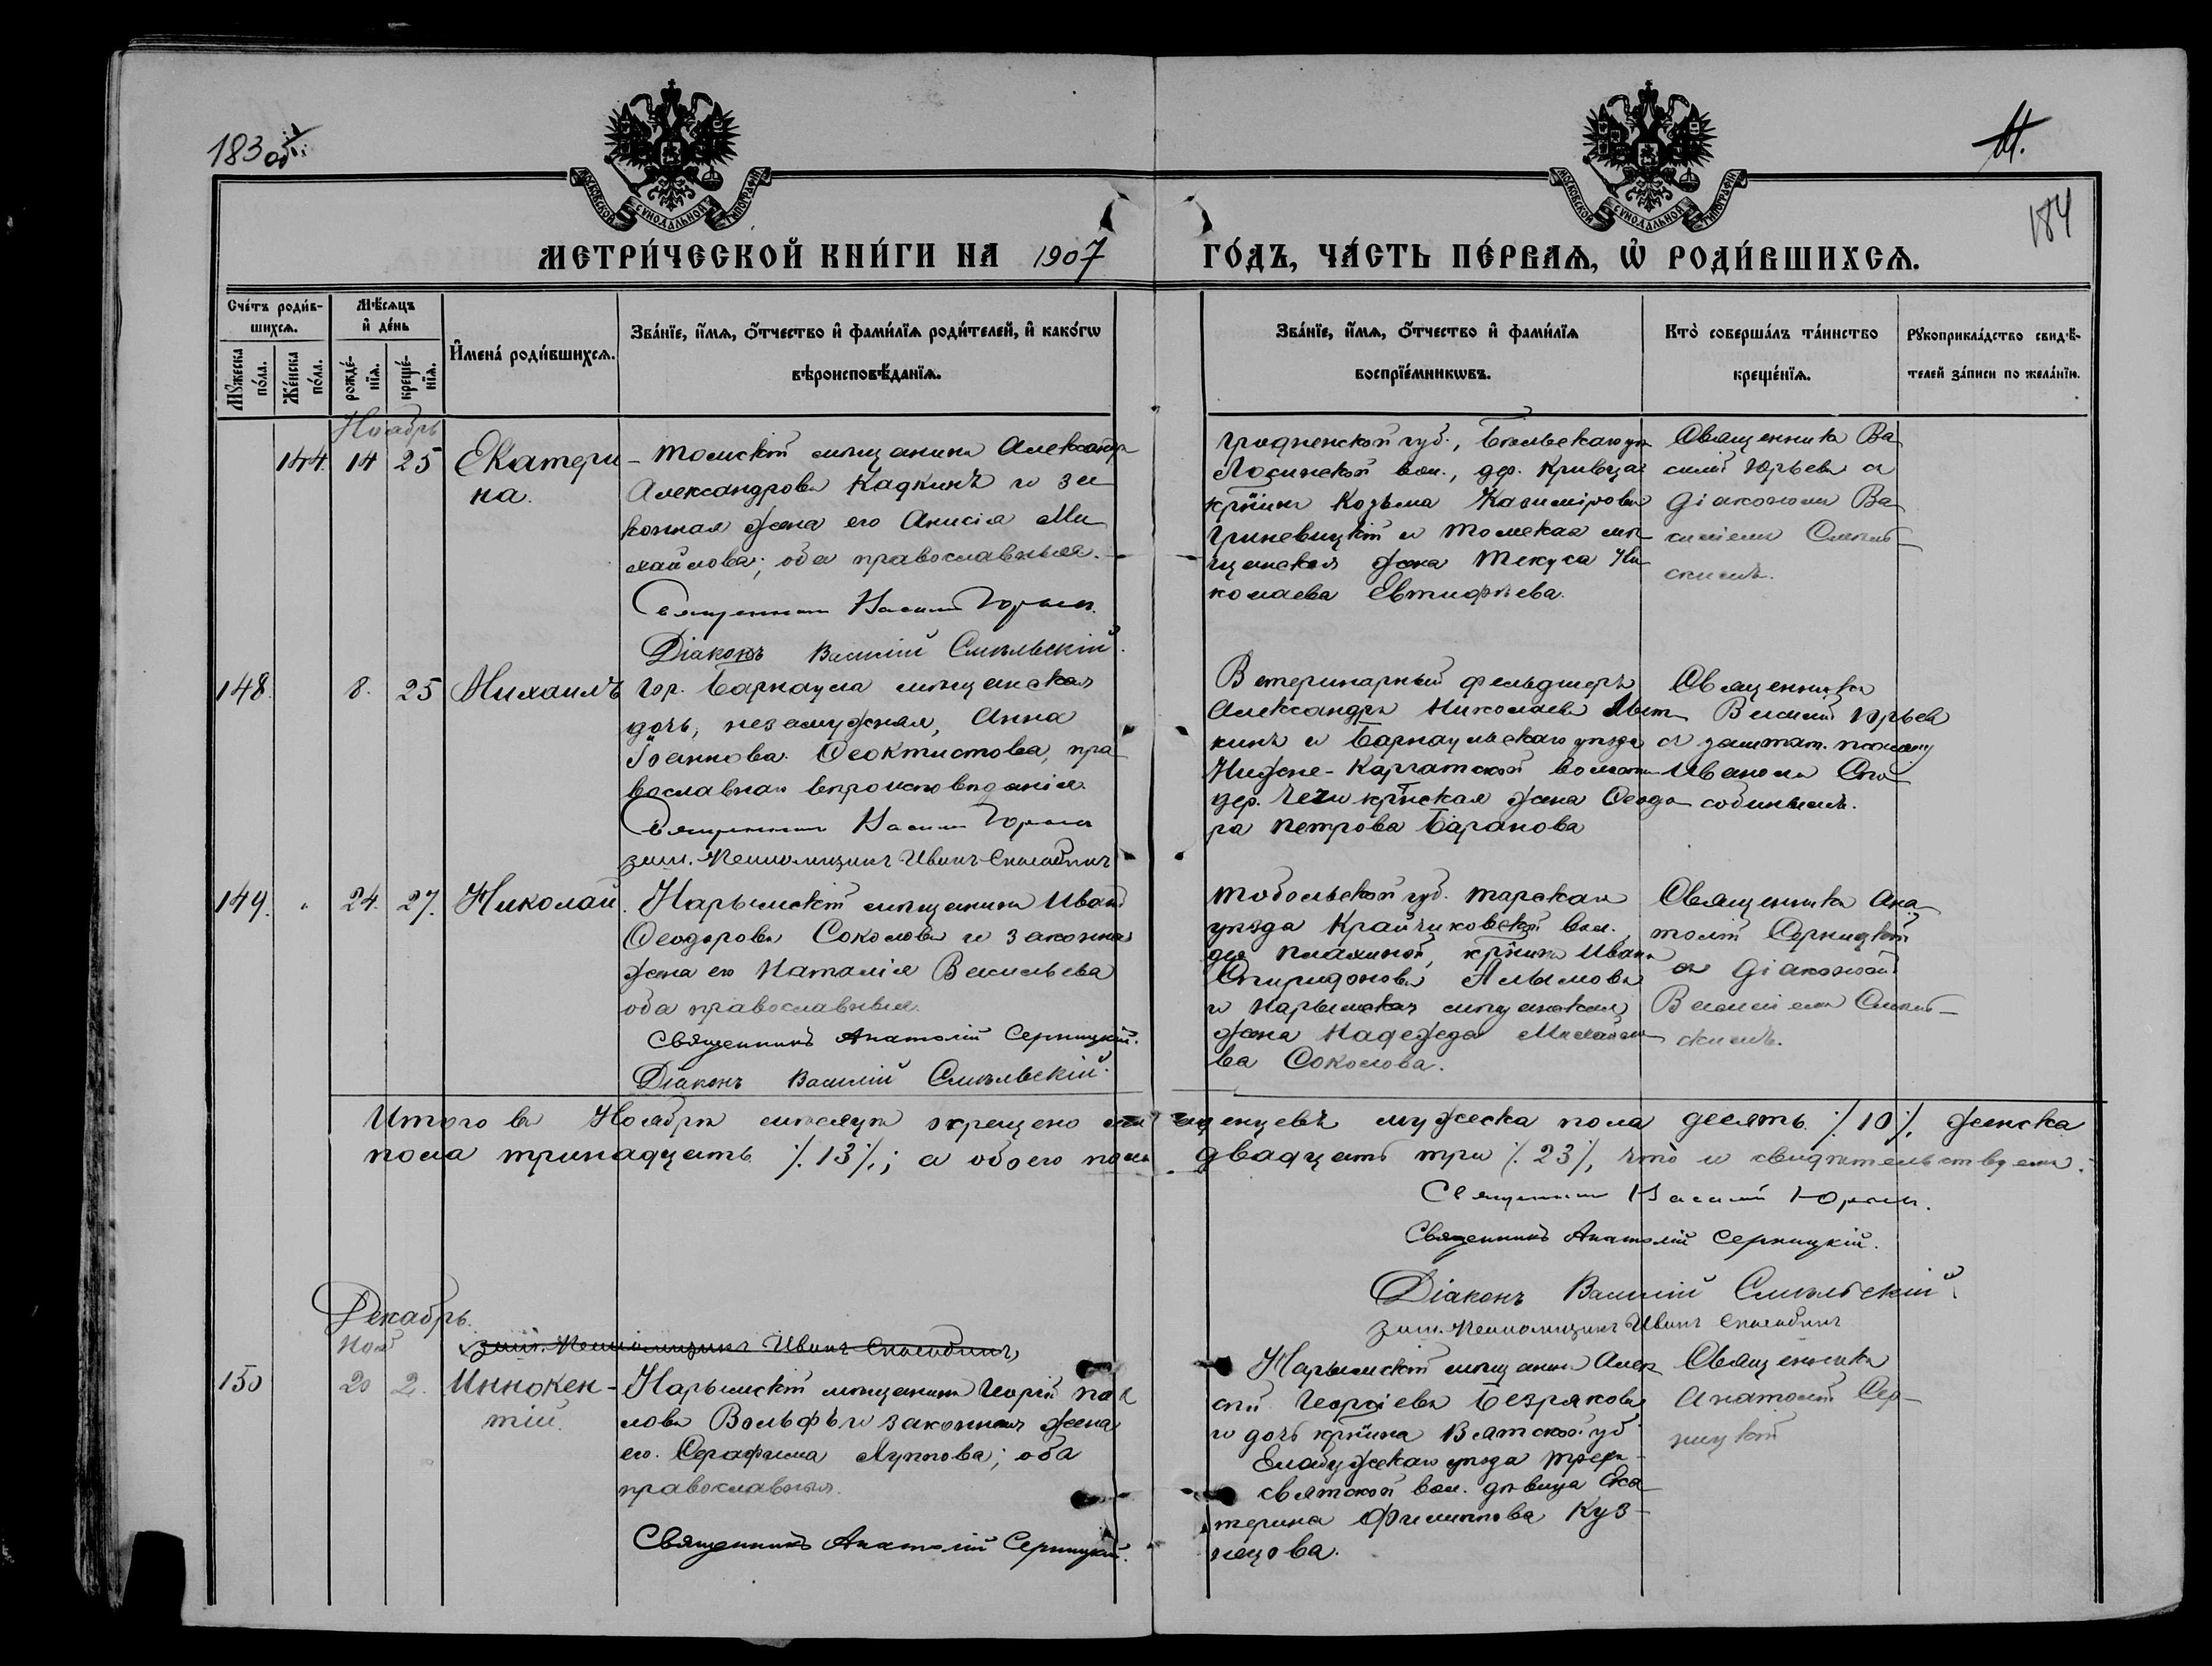 183 об
184
МОСКОВСКОЙ СѴНОДАЛЬНОЙ ТИПОГРАФІИ
МОСКОВСКОЙ СѴНОДАЛЬНОЙ ТИПОГРАФІИ
МЕТРИ́ЧЕСКОЙ КНИ́ГИ НА 1907 ГО́ДЪ, ЧА́СТЬ ПЕ́РВАѦ, Ѡ҆ РОДИ́ВШИХСѦ.
Сче́тъ роди́в-
шихсѧ.
Мꙋ́жеска по́ла.
Же́нска по́ла.
Мѣ́сѧцъ
и҆ де́нь
рожде́-
нїѧ.
креще́-
нїѧ.
И҆мена́ роди́вшихсѧ.
Зва́нїе, и҆́мѧ, ѻ҆́тчество и҆ фами́лїѧ роди́телей, и҆ како́гѡ
вѣроисповѣ́данїѧ.
Зва́нїе, и҆́мѧ, ѻ҆́тчество и҆ фами́лїѧ
воспрїе́мникѡвъ.
Кто̀ соверша́лъ та́инство
креще́нїѧ.
Рꙋкоприкла́дство свидѣ́-
телей за́писи по жела́нїю.
Ноябрь
144. 14 25 Екатери-
на.
Томскій мѣщанинъ Александръ
Александровъ Кадкинъ и за
конная жена его Анисія Ми
хайлова; оба православные.
Священникъ Василій Юрьевъ.
Діаконъ Василій Смѣльскій.
Гродненской губ., Бѣльскаго уѣ
Лосинской вол., дер. Кривца
кр̃нинъ Козьма Казиміровъ
Гриневицкій и Томская мѣ
щанская жена Текуса Ни
колаева Евтифѣева.
Священникъ Ва
силій Юрьевъ съ
діакономъ Ва
силіемъ Смѣль-
скимъ.
148. 8. 25 Михаилъ
Гор. Барнаула мѣщанская
дочь, незамужняя, Анна
Іоаннова Ѳеоктистова, пра
вославнаго вѣроисповѣданія.
Священникъ Василій Юрьевъ
заш. Псаломщикъ Иванъ Способинъ
Ветеринарный фельдшеръ
Александръ Николаевъ
кинъ и Барнаульскаго уѣзда
Нижне-Каргатской волости
дер. кр̃нская жена Ѳеодо
ра Петрова Баранова
Священникъ
Василій Юрьевъ
съ заштат. псаломщ
Иваномъ Спо
собинымъ.
149. 24. 27. Николай.
Нарымскій мѣщанинъ Иванъ
Ѳеодоровъ Соколовъ и законная
жена его Наталія Васильева
оба православные.
Священникъ Анатолій Серницкій.
Діаконъ Василій Смѣльскій.
Тобольской губ. Тарскаго
уѣзда Крайчиковской вол.
дер. кр̃нинъ Иванъ
Спиридоновъ Алымовъ
и Нарымская мѣщанская
жена Надежда Михайло
ва Соколова.
Священникъ Ана
толій Серницкій
съ діакономъ
Василіемъ Смѣль-
скимъ.
Итого въ Ноябрѣ мѣсяцѣ окрещено младенцевъ мужеска пола десять ٪10٪, женска
пола тринадцать ٪13٪; а обоего пола двадцать три ٪23٪, что и свидѣтельствуемъ.
Священникъ Василій Юрьевъ.
Священникъ Анатолій Серницкій.
Діаконъ Василій Смѣльскій.
заш. Псаломщикъ Иванъ Способинъ
Декабрь.
Нояб
заш. Псаломщикъ Иванъ Способинъ
150 20 2. Иннокен-
тій.
Нарымскій мѣщанинъ Георгій Пав
ловъ Вольфъ и законная жена
его Серафима Луппова; оба
православные.
Священникъ Анатолій Серницкій.
Нарымскій мѣщанинъ Алек
сѣй Георгіевъ Безряковъ
и дочь кр̃нина Вятской губ
Елабужскаго уѣзда Трехъ-
святской вол. дѣвица Ека
терина Филиппова Куз-
нецова.
Священникъ
Анатолій Сер-
ницкій